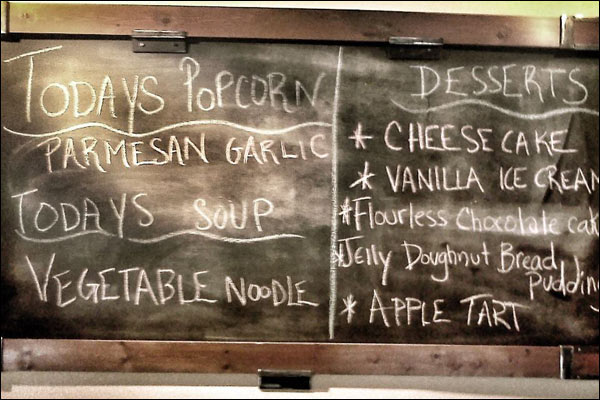 TODAYS POPCORN
PARMESAN GARLIC
TODAYS SOUP
VEGETABLE NOODLE
DESSERTS
* CHEESECAKE
* VANILLA ICE CREAM
* Flourless Chocolate cak
* Jelly Doughnut Bread
Pudding
* APPLE TART